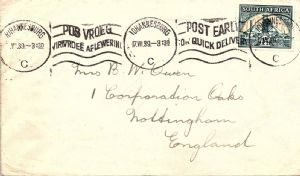 JOHANNESBURG
C
POS VROEG
VIR VROEË AFLEWERING
JOHANNESBURG
C
POST EARLY
FOR QUICK DELIVERY
C
SOUTH AFRICA
Mrs B. W. Owen
1 Corporation Oaks
Nottingham
England